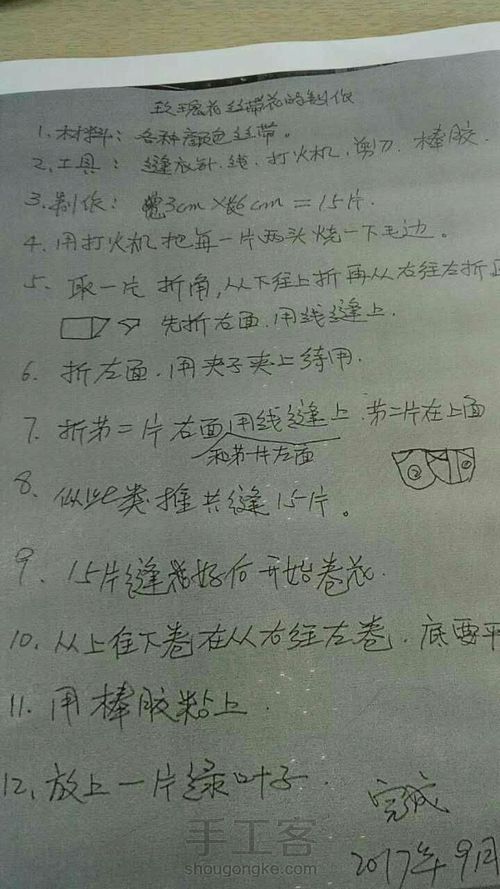 玫瑰花丝带花的制作
1. 材料: 各种颜色丝带。
2. 工具: 缝衣针、线、打火机、剪刀、棒胶.
3. 制作: 宽3cm×长6cm=15片.
4. 用打火机把每一片两头烧一下毛边。
5. 取一片折角,从下往上折再从右往左折
先折右面.用线缝上.
6. 折左面.用夹子夹上待用.
7. 折第二片右面用线缝上.第二片在上面
和第一片左面
②
8. 似此类推共缝15片。
9. 15片缝好后开始卷花.
10. 从上往下卷在从右往左卷.底要平
11. 用棒胶粘上.
12. 放上一片绿叶子.
完成
2017年9月
手工客
shougongke.com